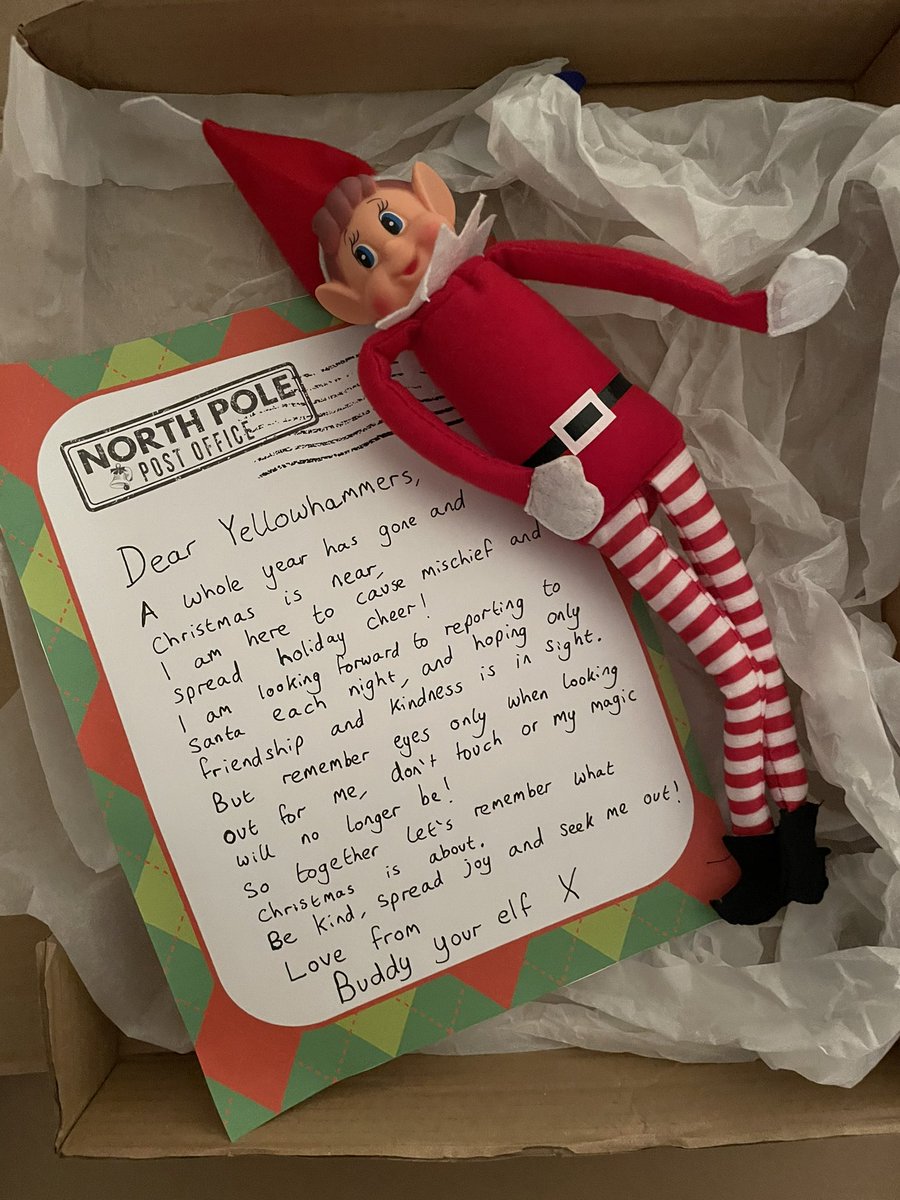 NORTH POLE
POST OFFICE
Dear Yellowhammers,
A whole year has gone and
Christmas is near,
I am here to cause mischief and
spread holiday cheer!
I am looking forward to reporting to
Santa each night, and hoping only
friendship and kindness is in sight.
But remember eyes only when looking
out for me, don't touch or my magic
will no longer be!
So together let's remember what
christmas is about.
Be kind, spread joy and seek me out!
Love from
Buddy your elf X